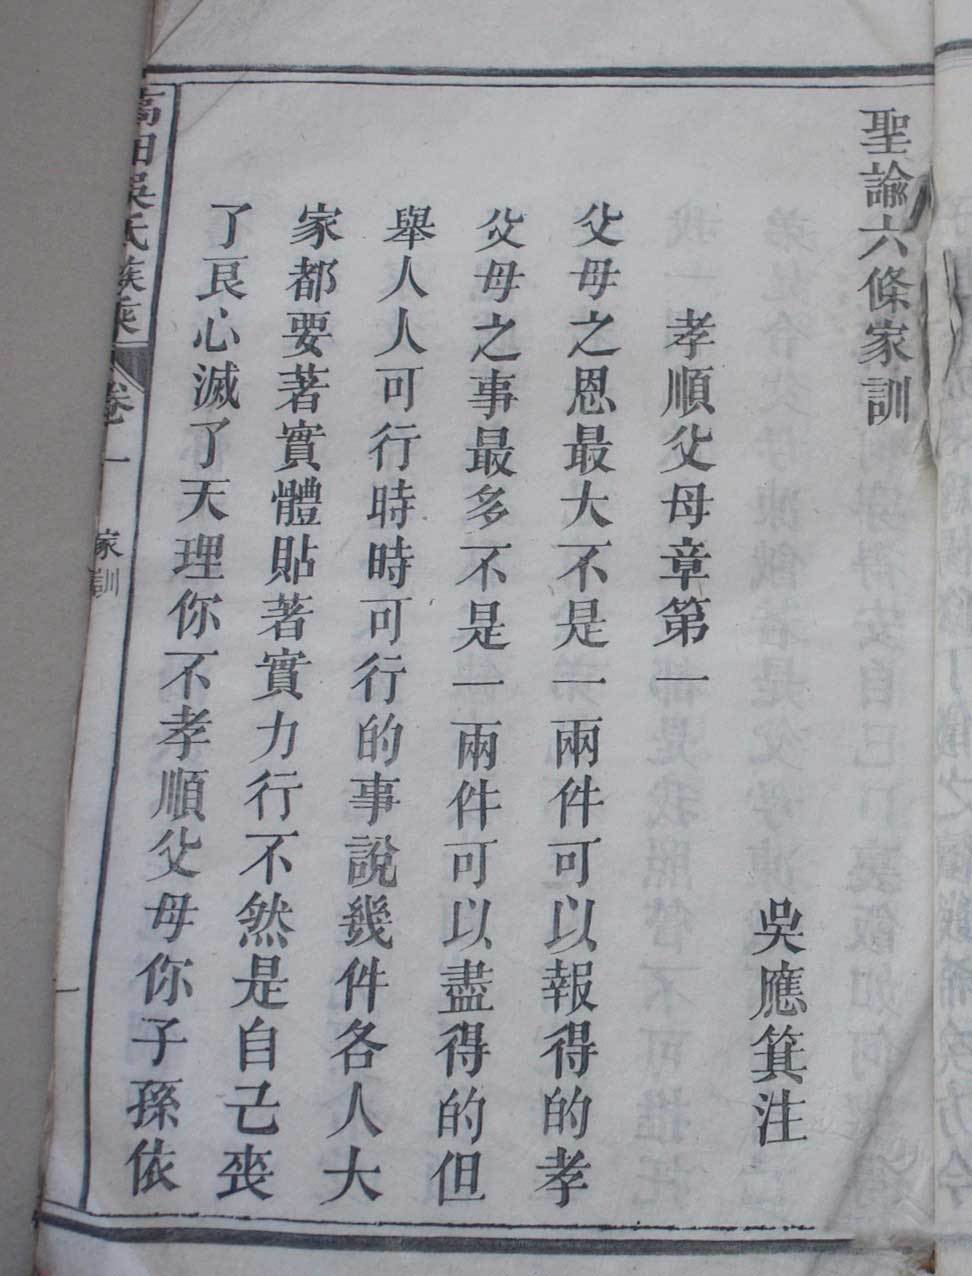 聖諭六條家訓
吳應箕注
孝順父母章第一
父母之恩最大不是一兩件可以報得的孝
父母之事最多不是一兩件可以盡得的但
舉人人可行時時可行的事說幾件各人大
家都要著實體貼著實力行不然是自己丧
了良心滅了天理你不孝順父母你子孫依
高田吳氏族乘
卷一
家訓
一